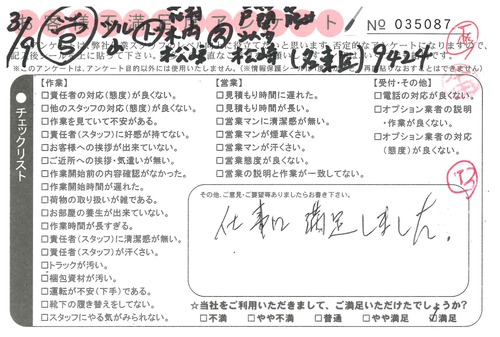 No 035087
9424
チェックリスト
【作業】
□責任者の対応(態度)が良くない。
□他のスタッフの対応(態度)が良くない。
□作業を見ていて不安がある。
□責任者(スタッフ)に好感が持てない。
□お客様への挨拶が出来ていない。
□ご近所への挨拶・気遣いが無い。
□作業開始前の内容確認がなかった。
□作業開始時間が遅れた。
□荷物の取り扱いが雑である。
□お部屋の養生が出来ていない。
□責任者(スタッフ)に清潔感が無い。
□責任者(スタッフ)が汗くさい。
□トラックが汚い。
□梱包資材が汚い。
□運転が不安(下手)である。
□靴下の履き替えをしてない。
□スタッフにやる気がみられない。
【営業】
□見積もり時間に遅れた。
□見積もり時間が長い。
□営業マンに清潔感が無い。
□営業マンが煙草くさい。
□営業マンが汗くさい。
□営業態度が良くない。
□営業の説明と作業が異なった。
【受付・その他】
□電話の対応が良くない。
□オプション業者の説明
・作業が良くない。
□オプション業者の対応
(態度)が良くない。
その他、ご意見・ご要望等ありましたらお書き下さい。
仕事に満足しました。
☆当社をご利用いただきまして、ご満足いただけたでしょうか?
□不満 □やや不満 □普通 □やや満足 ☑満足